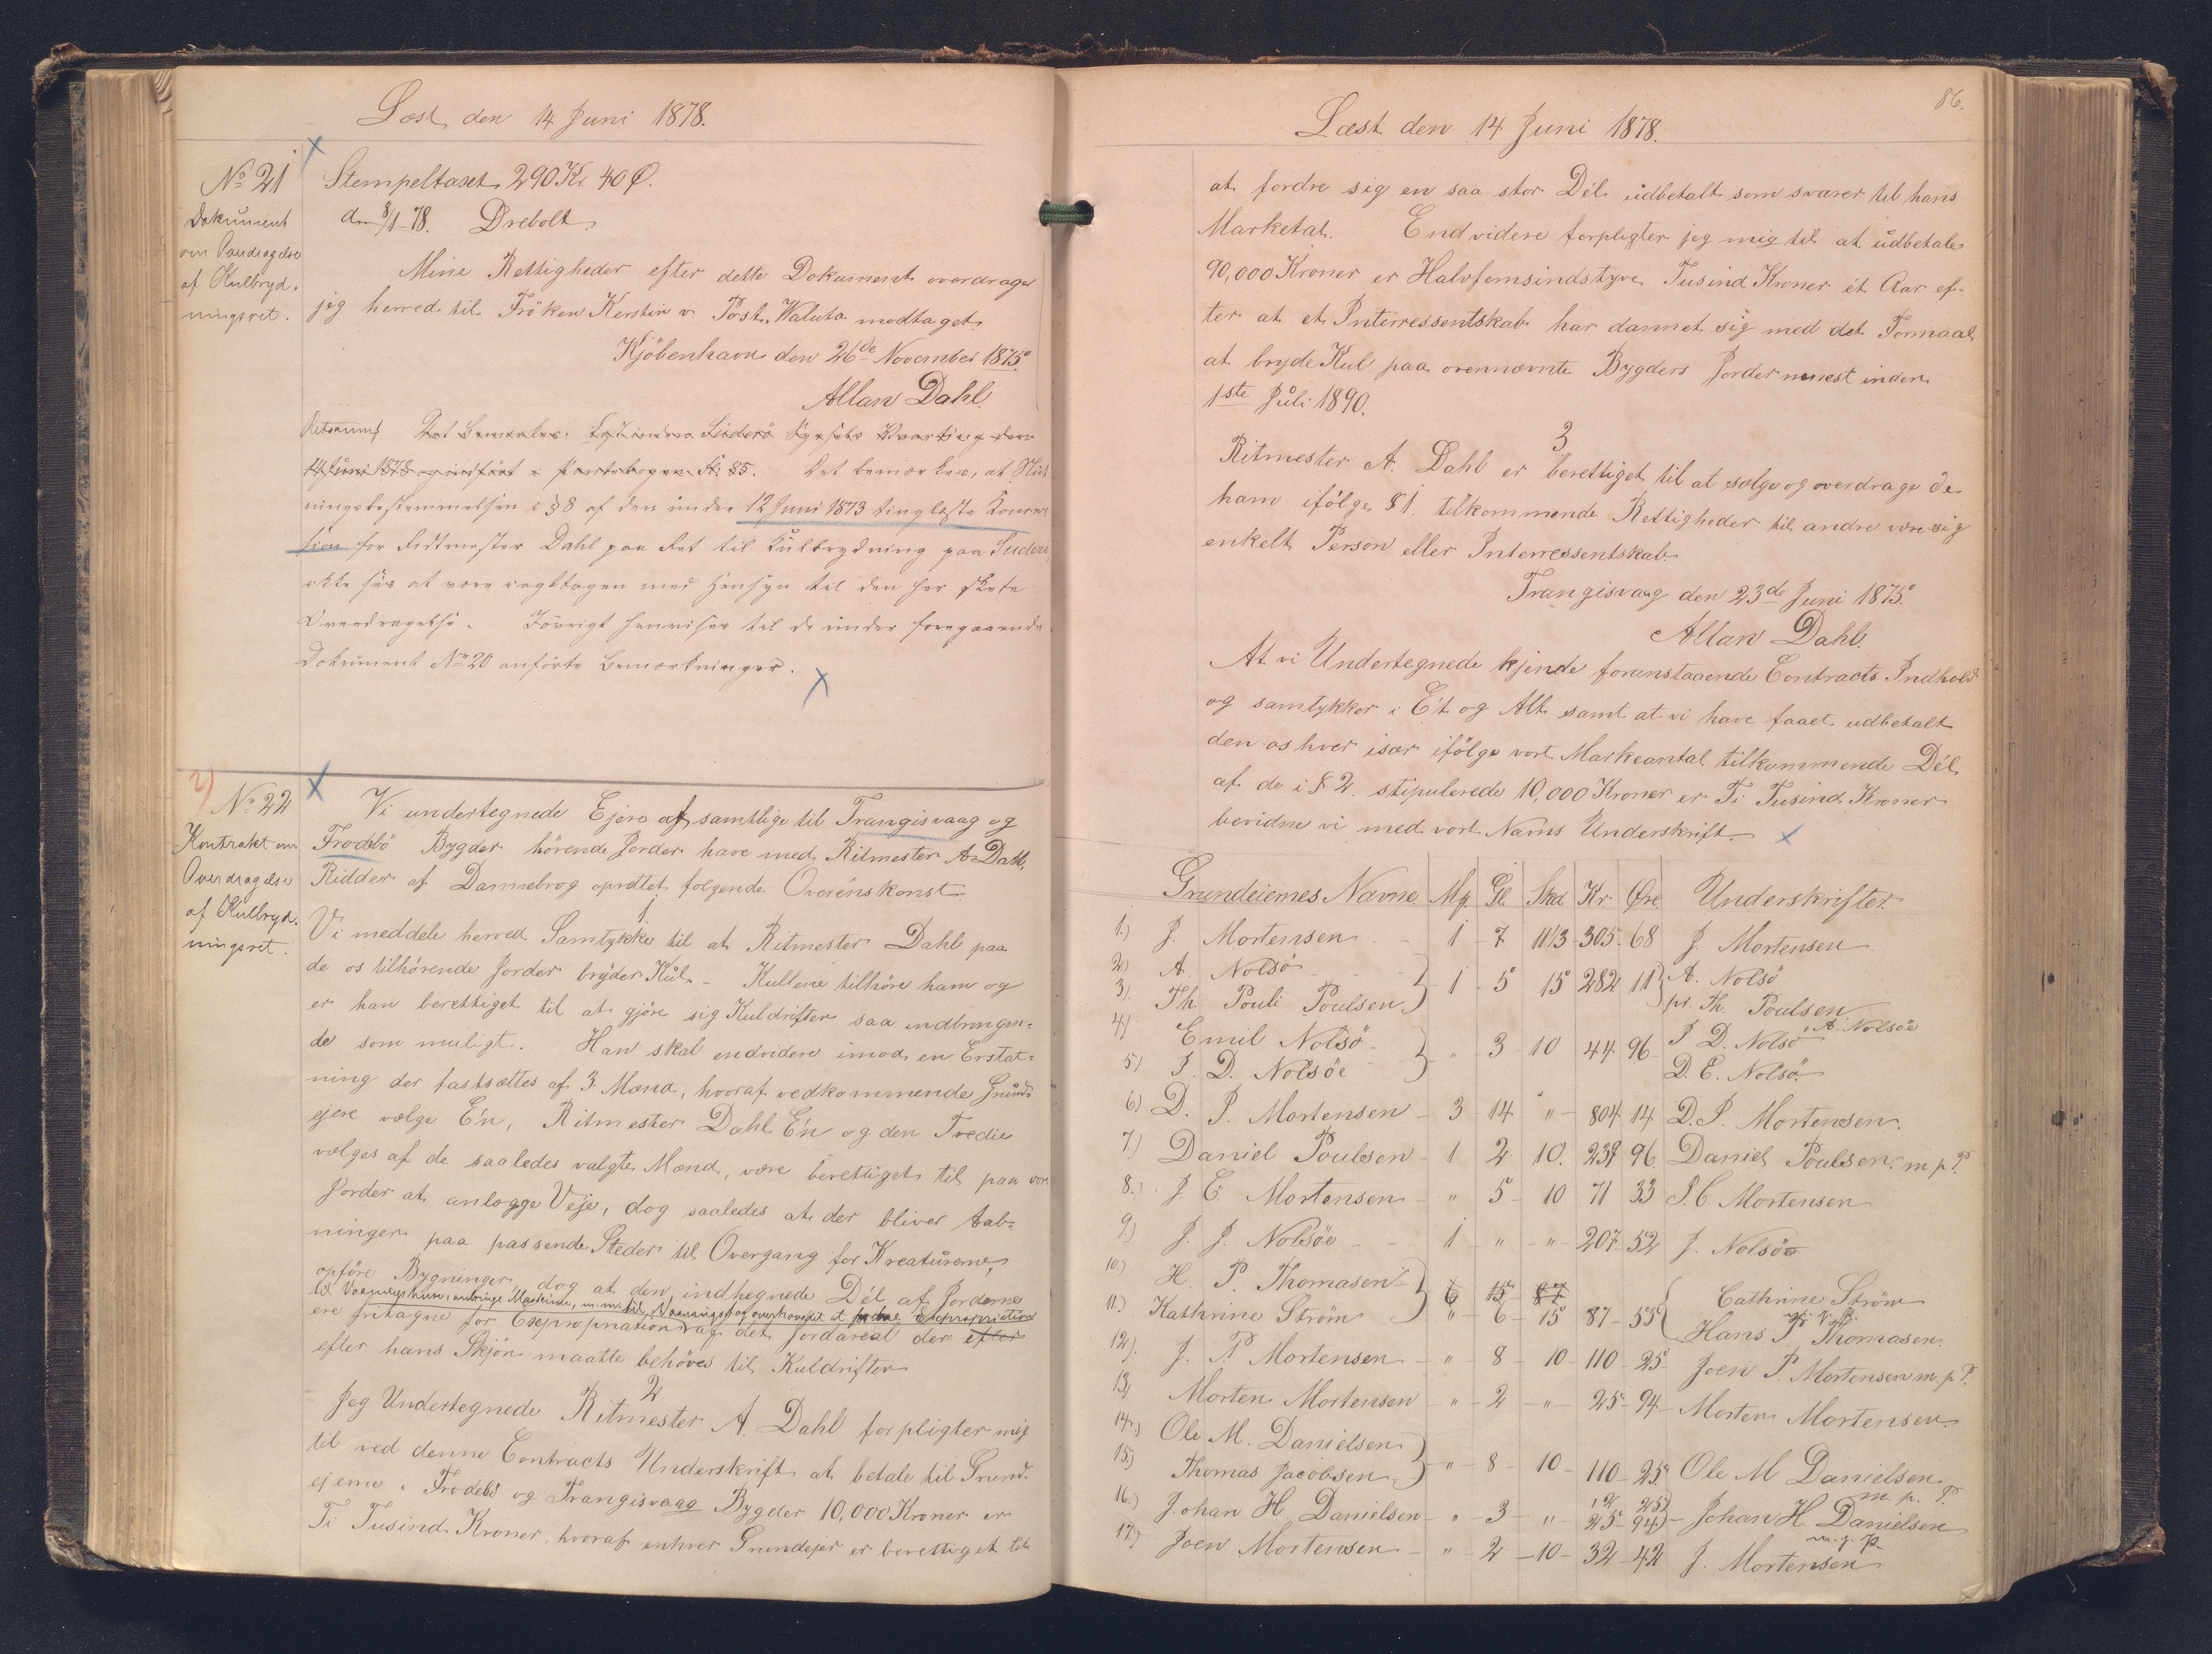 Læst den 14 Juni 1878.
No 21
Dokument
om Overdragelse
af Kulbryd-
ningsret.
Stempeltaxt 290 Kr. 40 Ø.
d. 8/1 78. Drebolt.
Mine Rettigheder efter dette Dokument overdrager
jeg herved til Fröken Kerstin v. Post. Waluta modtaget
Kjöbenhavn den 26de November 1875.
Allan Dahl.
Det bemærkes. Læst inden Suderö Syssels Vaarting den
14 Juni 1878 og indført i Pantebogen Fol. 85. Det bemærkes, at Slut-
ningsbestemmelsen i § 8 af den under 12 Juni 1873 tinglæste Konces-
sion for Ritmester Dahl paa Ret til Kulbrydning paa Suderö
ikke sees at være iagttagen med Hensyn til den her skete
Overdragelse. Iövrigt henvises til de under foregaaende
Dokument No 20 anførte Bemærkninger.
2)
No 22
Kontrakt om
Overdragelse
af Kulbryd-
ningsret.
Vi undertegnede Ejere af samtlige til Trangisvaag og
Frodebö Bygder hörende Jorder have med Ritmester A. Dahl,
Ridder af Dannebrog oprettet følgende Overenskomst
1
Vi meddele herved Samtykke til at Ritmester Dahl paa
de os tilhörende Jorder bryder Kul. - Kullene tilhöre ham og
er han berettiget til at gjöre sig Kuldriften saa indbringen=
de som muligt. Han skal endvidere imod en Erstat=
ning der fastsættes af 3 Mænd, hvoraf vedkommende Grund=
ejere vælge Én, Ritmester Dahl Én og den Tredie
vælges af de saaledes valgte Mænd, være berettiget til paa vore
Jorder at anlægge Veje, dog saaledes at der bliver Aab=
ninger paa passende Steder til Overgang for Kreaturerne,
opföre Bygninger, dog at den indhegnede Dél af Jorderne
til Vaaningshuse, anbringe Maskiner, m.m. til Vaaninger og overhovedet at fordre Expropriation
ere fritagne for Expropriation af det Jordareal der efter
efter hans Skjön maatte behöves til Kuldriften
2
Jeg Undertegnede Ritmester A. Dahl forpligter mig
til ved denne Contracts Underskrift at betale til Grund-
ejerne i Frodebö og Trangisvaag Bygder 10,000 Kroner er
Ti Tusind Kroner, hvoraf enhver Grundejer er berettiget til
86.
Læst den 14 Juni 1878.
at fordre sig en saa stor Dél udbetalt som svarer til hans
Marketal. Endvidere forpligter jeg mig til at udbetale
90,000 Kroner er Halvfemsindstyve Tusind Kroner ét Aar ef=
ter at et Interressentskab har dannet sig med det Formaal
at bryde Kul paa ovennævnte Bygders Jorder senest inden
1ste Juli 1890.
3
Ritmester A. Dahl er berettiget til at sælge og overdrage de
ham ifölge § 1. tilkommende Rettigheder til andre være sig
enkelt Person eller Interressentskab.
Trangisvaag den 23de Juni 1875.
Allan Dahl.
At vi Undertegnede kjende foranstaaende Contracts Indhold
og samtykker i Ét og Alt samt at vi have faaet udbetalt
den os hver især ifölge vort Markeantal tilkommende Dél
af de i § 2. stipulerede 10,000 Kroner er Ti Tusind Kroner
bevidne vi med vort Navns Underskrift.
Grundeiernes Navne. Mk. Gl. Skd Kr. Øre. Underskrifter.
1.) J. Mortensen - 1 - 7 11 1/3 - 305 - 68 J. Mortensen
2) A. Nolsö
3) Th. Pouli Poulsen } 1 - 5 15 282 11 } A. Nolsö
pr. Th. Poulsen
A. Nolsöe
4) Emil Nolsö
5) J. D. Nolsöe } " 3 - 10 44 96 - J. D. Nolsö
D. E. Nolsö.
6) D. P. Mortensen - 3 - 14 " - 804 14 D. P. Mortensen.
7) Daniel Poulsen - 1 2 10. 239 96 Daniel Poulsen. m. p. P.
8.) J. E. Mortensen - " 5 - 10 71 33 J. E. Mortensen
9) J. J. Nolsöe - 1 - " - " - 207 - 52 J. Nolsöe
10.) H. P. Thomasen } 6 15 87 { Cathrine Ström
11.) Kathrine Ström " - 6 - 15 87 - 55 Hans P. Thomasen.
12). J. P. Mortensen - " - 8 - 10 - 110 - 25 Joen P. Mortensen m. p. P.
13) Morten Mortensen - " - 2 - " - 25 - 94 - Morten Mortensen
14.) Ole M. Danielsen
15.) Thomas Jacobsen } " - 8 - 10 - 110 - 25. Ole M Danielsen
m. p. P.
16.) Johan H. Danielsen - " - 3 - " 12 25
25 - 94 - Johan H. Danielsen
m. p. P.
17.) Joen Mortensen - " - 2 - 10 - 32 - 42 J. Mortensen